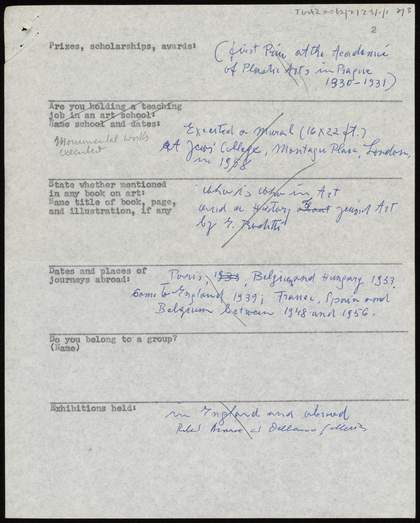 2
Prizes, scholarships, awards:
(first Prize at the Academie
of Plastic Arts in Prague
1930-1931)
Are you holding a teaching
job in an art school:
Name school and dates:
Monumental works
executed
Executed a Mural (16x22 ft.)
at Jews' College, Montagu Place, London,
in 1958
State whether mentioned
in any book on art:
Name title of book, page,
and illustration, if any
who's who in Art
and a History Jewish Art
by
Dates and places of
journeys abroad:
Paris, Belgium and Hungary 1933.
Came to England 1939; France, Spain and
Belgium between 1948 and 1956.
Do you belong to a group?
(Name)
Exhibitions held:
in England and abroad
Galleries